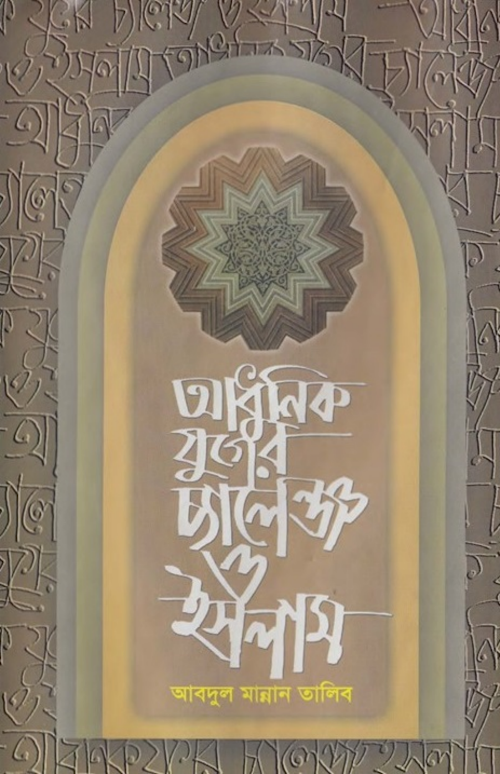 আধুনিক
যুগের
চ্যালেঞ্জ
ও
ইসলাম
আবদুল মান্নান তালিব